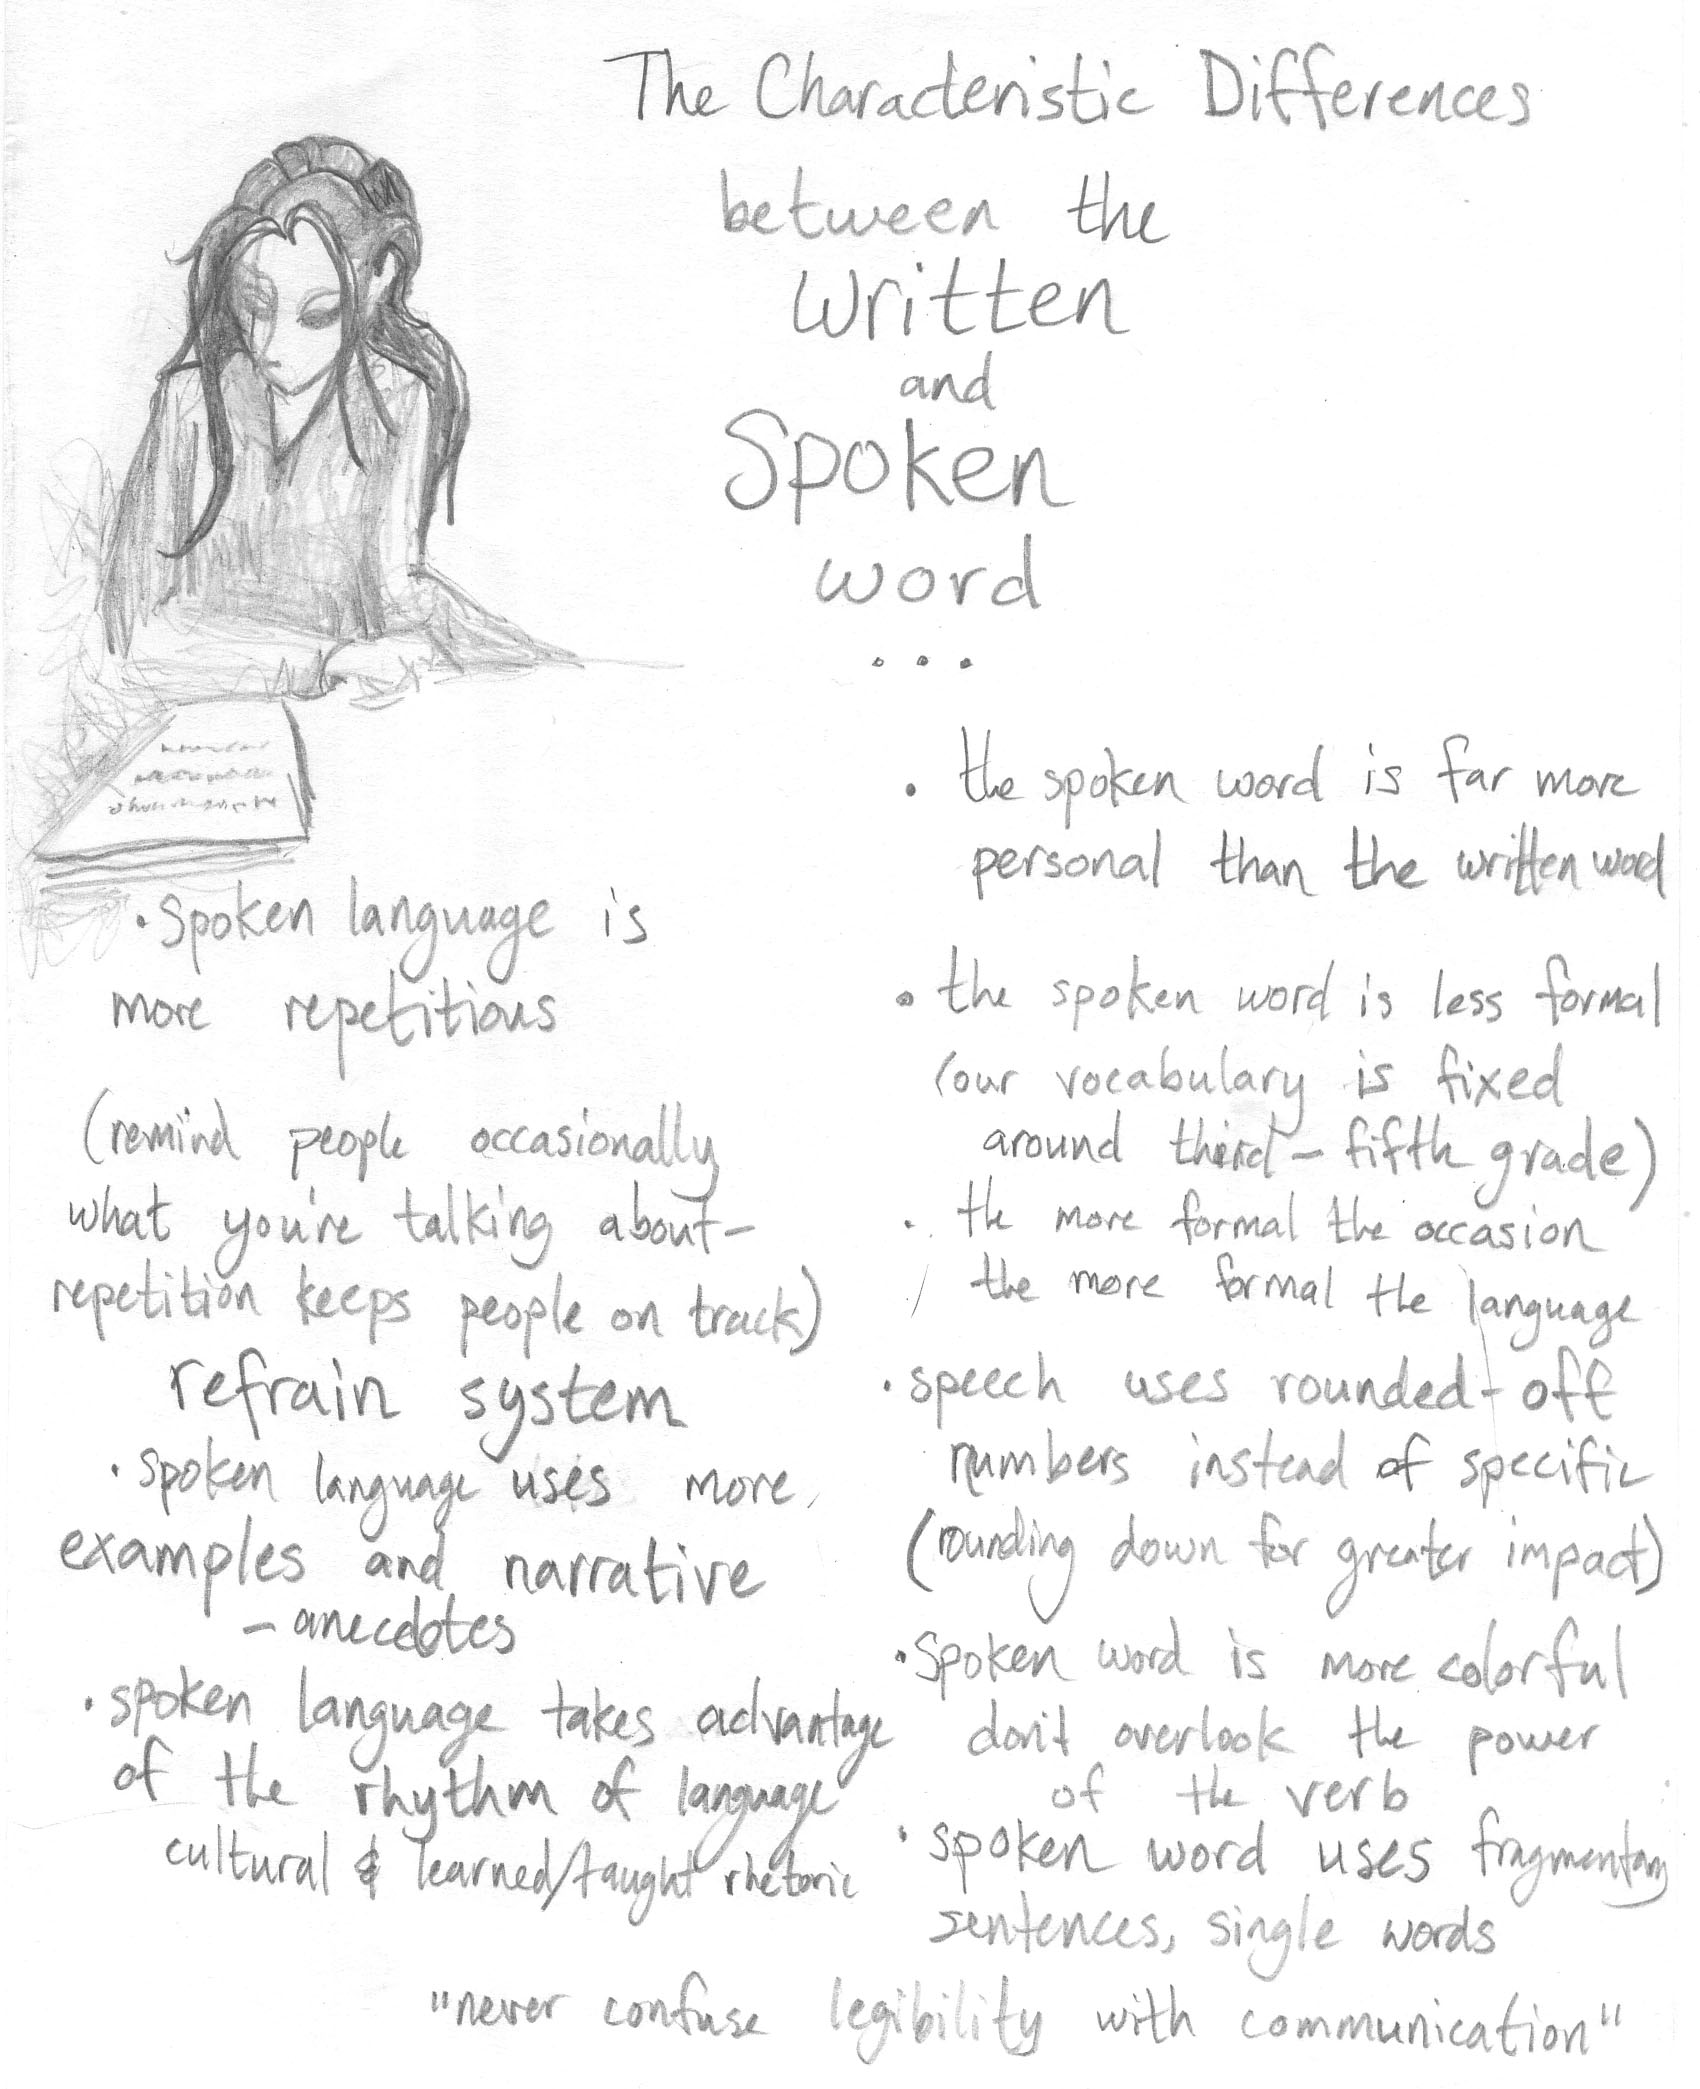 The Characteristic Differences
between the
Written
and
Spoken
word
...
• Spoken language is
more repetitious
(remind people occasionally
what you're talking about-
repetition keeps people on track)
refrain system
• spoken language uses more
examples and narrative
- anecdotes
• spoken language takes advantage
of the rhythm of language
cultural & learned/taught rhetoric
• the spoken word is far more
personal than the written word
• the spoken word is less formal
(our vocabulary is fixed
around third - fifth grade)
• the more formal the occasion
the more formal the language
• speech uses rounded-off
numbers instead of specific
(rounding down for greater impact)
• Spoken word is more colorful
don't overlook the power
of the verb
• spoken word uses fragmentary
sentences, single words
"never confuse legibility with communication"